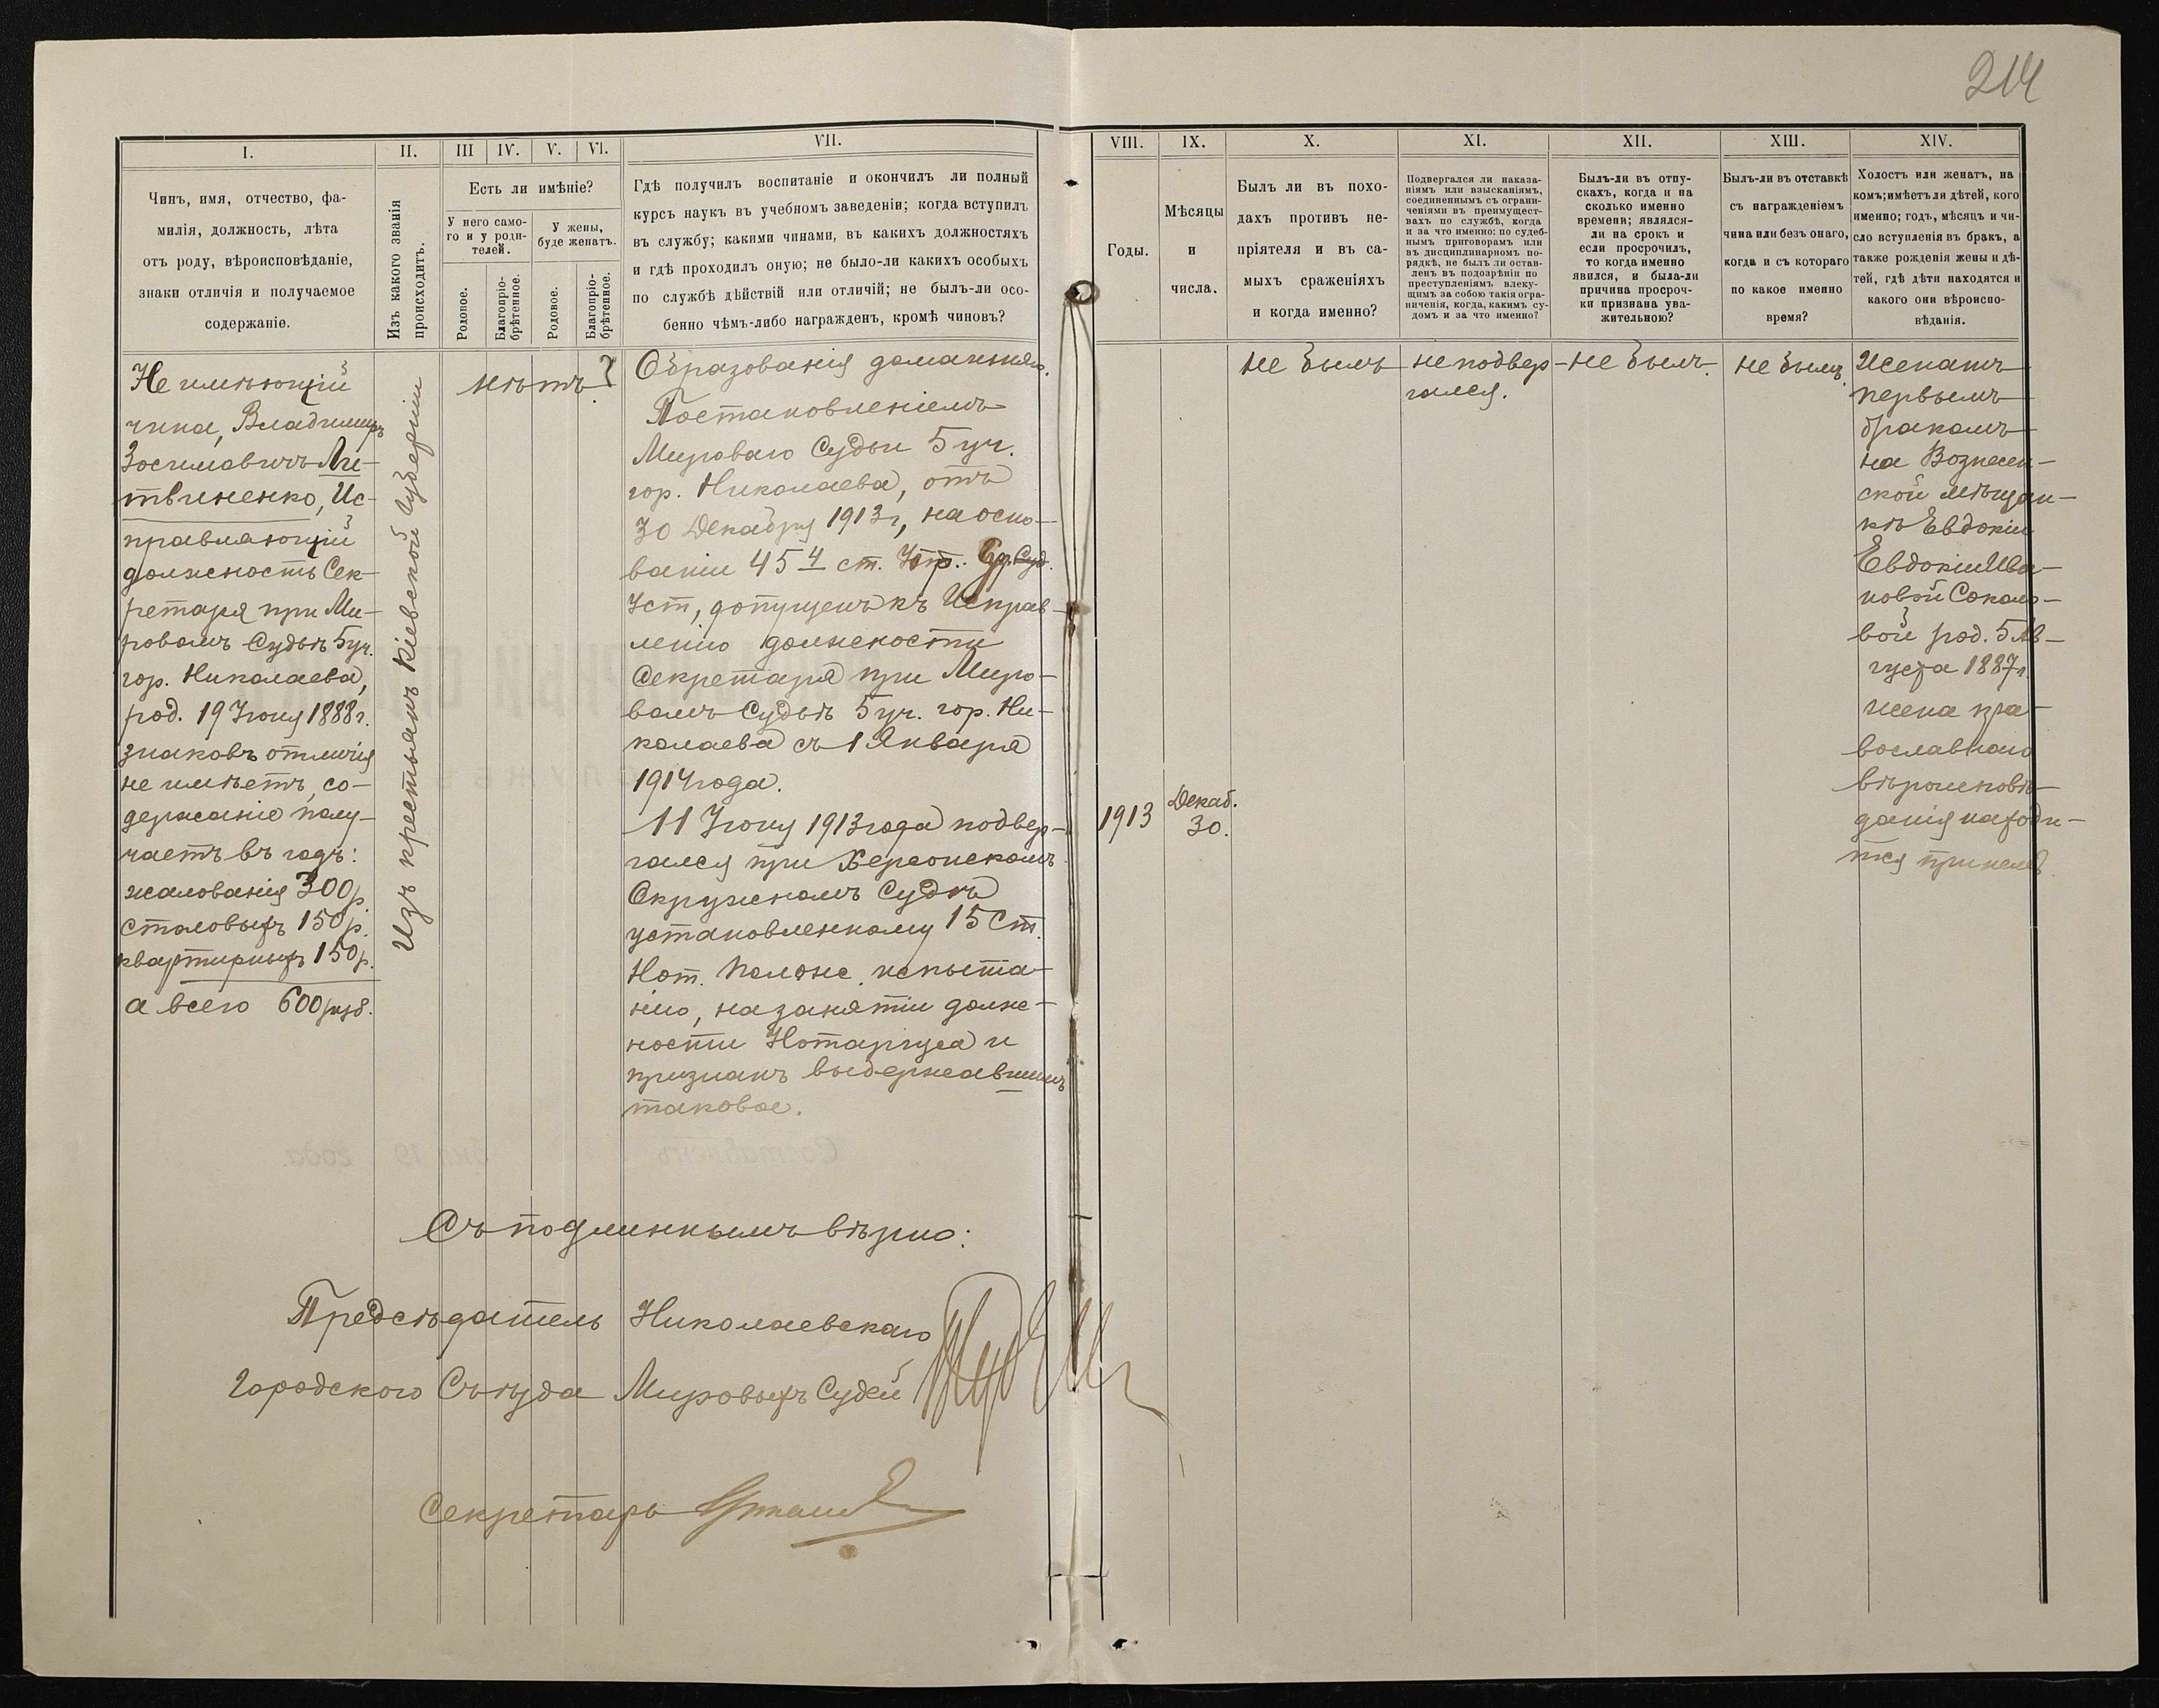 214
I.
II.
III
IV.
V.
VI.
VII.
VIII.
IX.
X.
XI.
XII.
XIII.
XIV.
Чинъ, имя, отчество, фа-
милія, должность, лѣта
отъ роду, вѣроисповѣданіе,
знаки отличія и получаемое
содержаніе.
Изъ какого званія
происходитъ.
Есть ли имѣніе?
У него само-
го и у роди-
телей.
У жены,
буде женатъ.
Родовое.
Благопріо-
брѣтенное.
Родовое.
Благопріо-
брѣтенное.
Гдѣ получилъ воспитаніе и окончилъ ли полный
курсъ наукъ въ учебномъ заведеніи; когда вступилъ
въ службу; какими чинами, въ какихъ должностяхъ
и гдѣ проходилъ оную; не было-ли какихъ особыхъ
по службѣ дѣйствій или отличій; не былъ-ли осо-
бенно чѣмъ-либо награжденъ, кромѣ чиновъ?
Годы.
Мѣсяцы
и
числа.
Былъ ли въ похо-
дахъ противъ не-
пріятеля и въ са-
мыхъ сраженіяхъ
и когда именно?
Подвергался ли наказа-
ніямъ или взысканіямъ,
соединеннымъ съ ограни-
ченіями въ преимущест-
вахъ по службѣ, когда
и за что именно: по судеб-
нымъ приговорамъ или
въ дисциплинарномъ по-
рядкѣ, не былъ ли остав-
ленъ въ подозрѣніи по
преступленіямъ влеку-
щимъ за собою такія огра-
ниченія, когда, какимъ су-
домъ и за что именно?
Былъ-ли въ отпу-
скахъ, когда и на
сколько именно
времени; являлся-
ли на срокъ и
если просрочилъ,
то когда именно
явился, и была-ли
причина просроч-
ки признана ува-
жительною?
Былъ-ли въ отставкѣ
съ награжденіемъ
чина или безъ онаго,
когда и съ котораго
по какое именно
время?
Холостъ или женатъ, на
комъ; имѣетъ ли дѣтей, кого
именно; годъ, мѣсяцъ и чи-
сло вступленія въ бракъ, а
также рожденія жены и дѣ-
тей, гдѣ дѣти находятся и
какого они вѣроиспо-
вѣданія.
Не имѣющій
чина, Владимиръ
Зосимовичъ Ли-
твиненко, Ис-
правляющій
должность Сек-
ретаря при Ми-
ровомъ Судьѣ 5 уч.
гор. Николаева,
род. 19 Іюня 1888 г.
знаковъ отличія
не имѣетъ, со-
держаніе полу-
чаетъ въ годъ:
жалованія 300 р.
столовыхъ 150 р.
квартирныхъ 150 р.
а всего 600 руб.
Изъ крестьянъ Кіевской Губерніи
нѣтъ
Образованія домашняго.
Постановленіемъ
Мироваго Судьи 5 уч.
гор. Николаева, отъ
30 Декабря 1913 г, на осно-
ваніи 45 4 ст. Суд.
Уст, допущенъ къ Исправ-
ленію должности
Секретаря при Миро-
вомъ Судьѣ 5 уч. гор. Ни-
колаева съ 1 Января
1914 года.
11 Іюня 1913 года подвер-
гался при Херсонскомъ
Окружномъ Судѣ
установленному 15 Ст.
Нот. Полож. испыта-
нію, на занятіи долж-
ности Нотаріуса и
признанъ выдержавшимъ
таковое.
1913
Декаб.
30.
не былъ
не подвер-
гался.
не былъ.
не былъ.
Женатъ
первымъ
бракомъ
на Вознесен-
ской мѣщан-
кѣ Евдокіи
Евдокіи Ива-
новой Соколо-
вой род. 5 Ав-
густа 1887 г.
жена пра-
вославнаго
вѣроисповѣ-
данія находи-
тся при немъ
Съ подлиннымъ вѣрно:
Предсѣдатель Николаевскаго
Городского Съѣзда Мировыхъ Судей
Секретарь